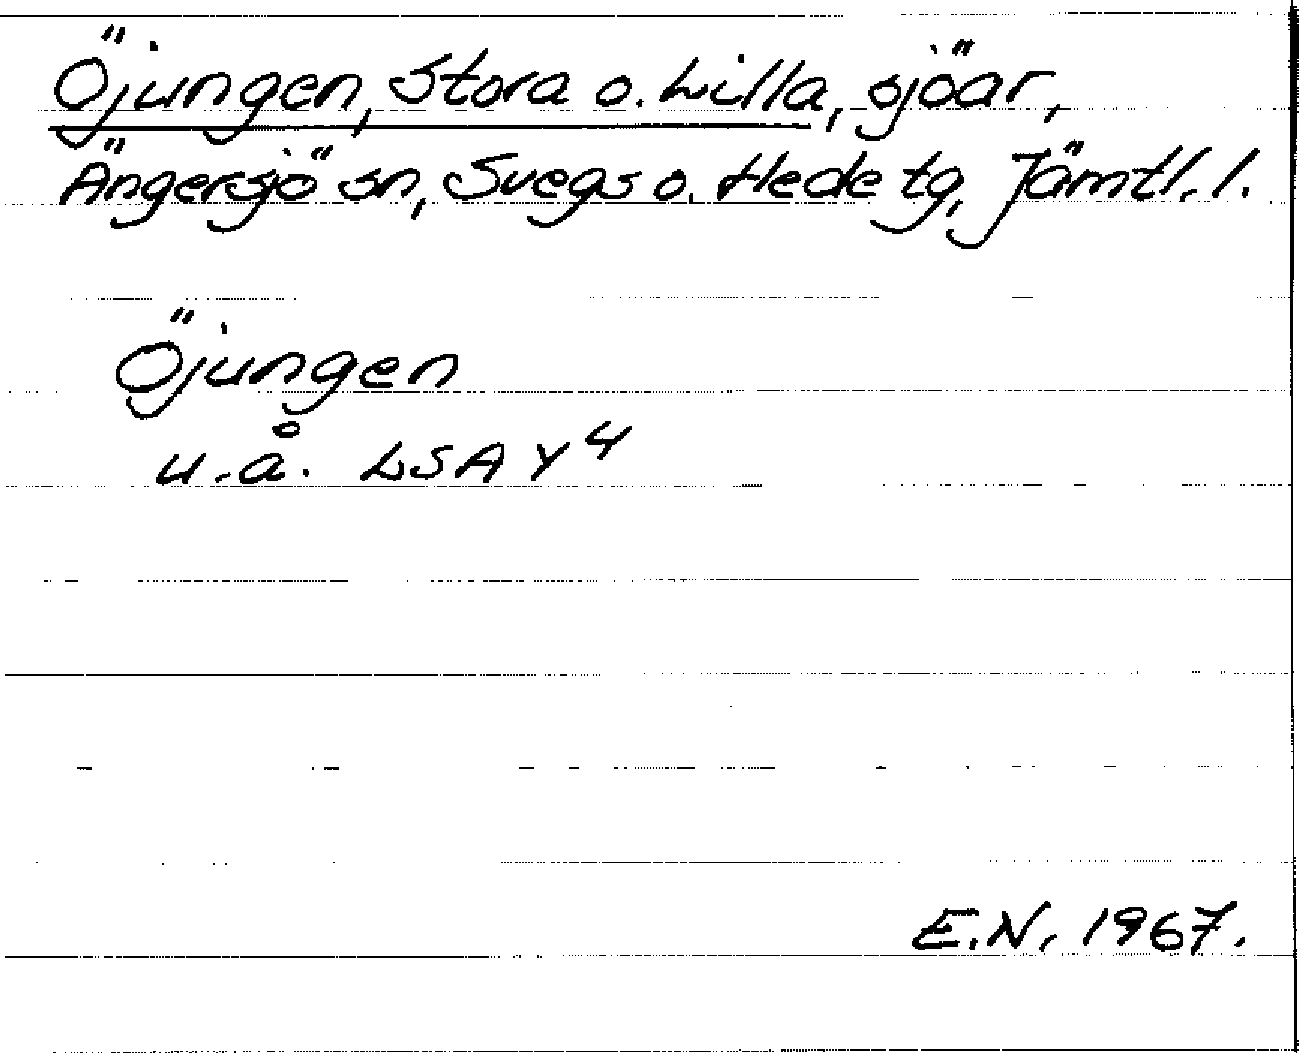 Öjungen, Stora o. Lilla, sjöar,
Ängersjö sn, Svegs o. Hede tg, Jämtl. l.
Öjungen
u.å. LSA Y4
E.N. 1967.